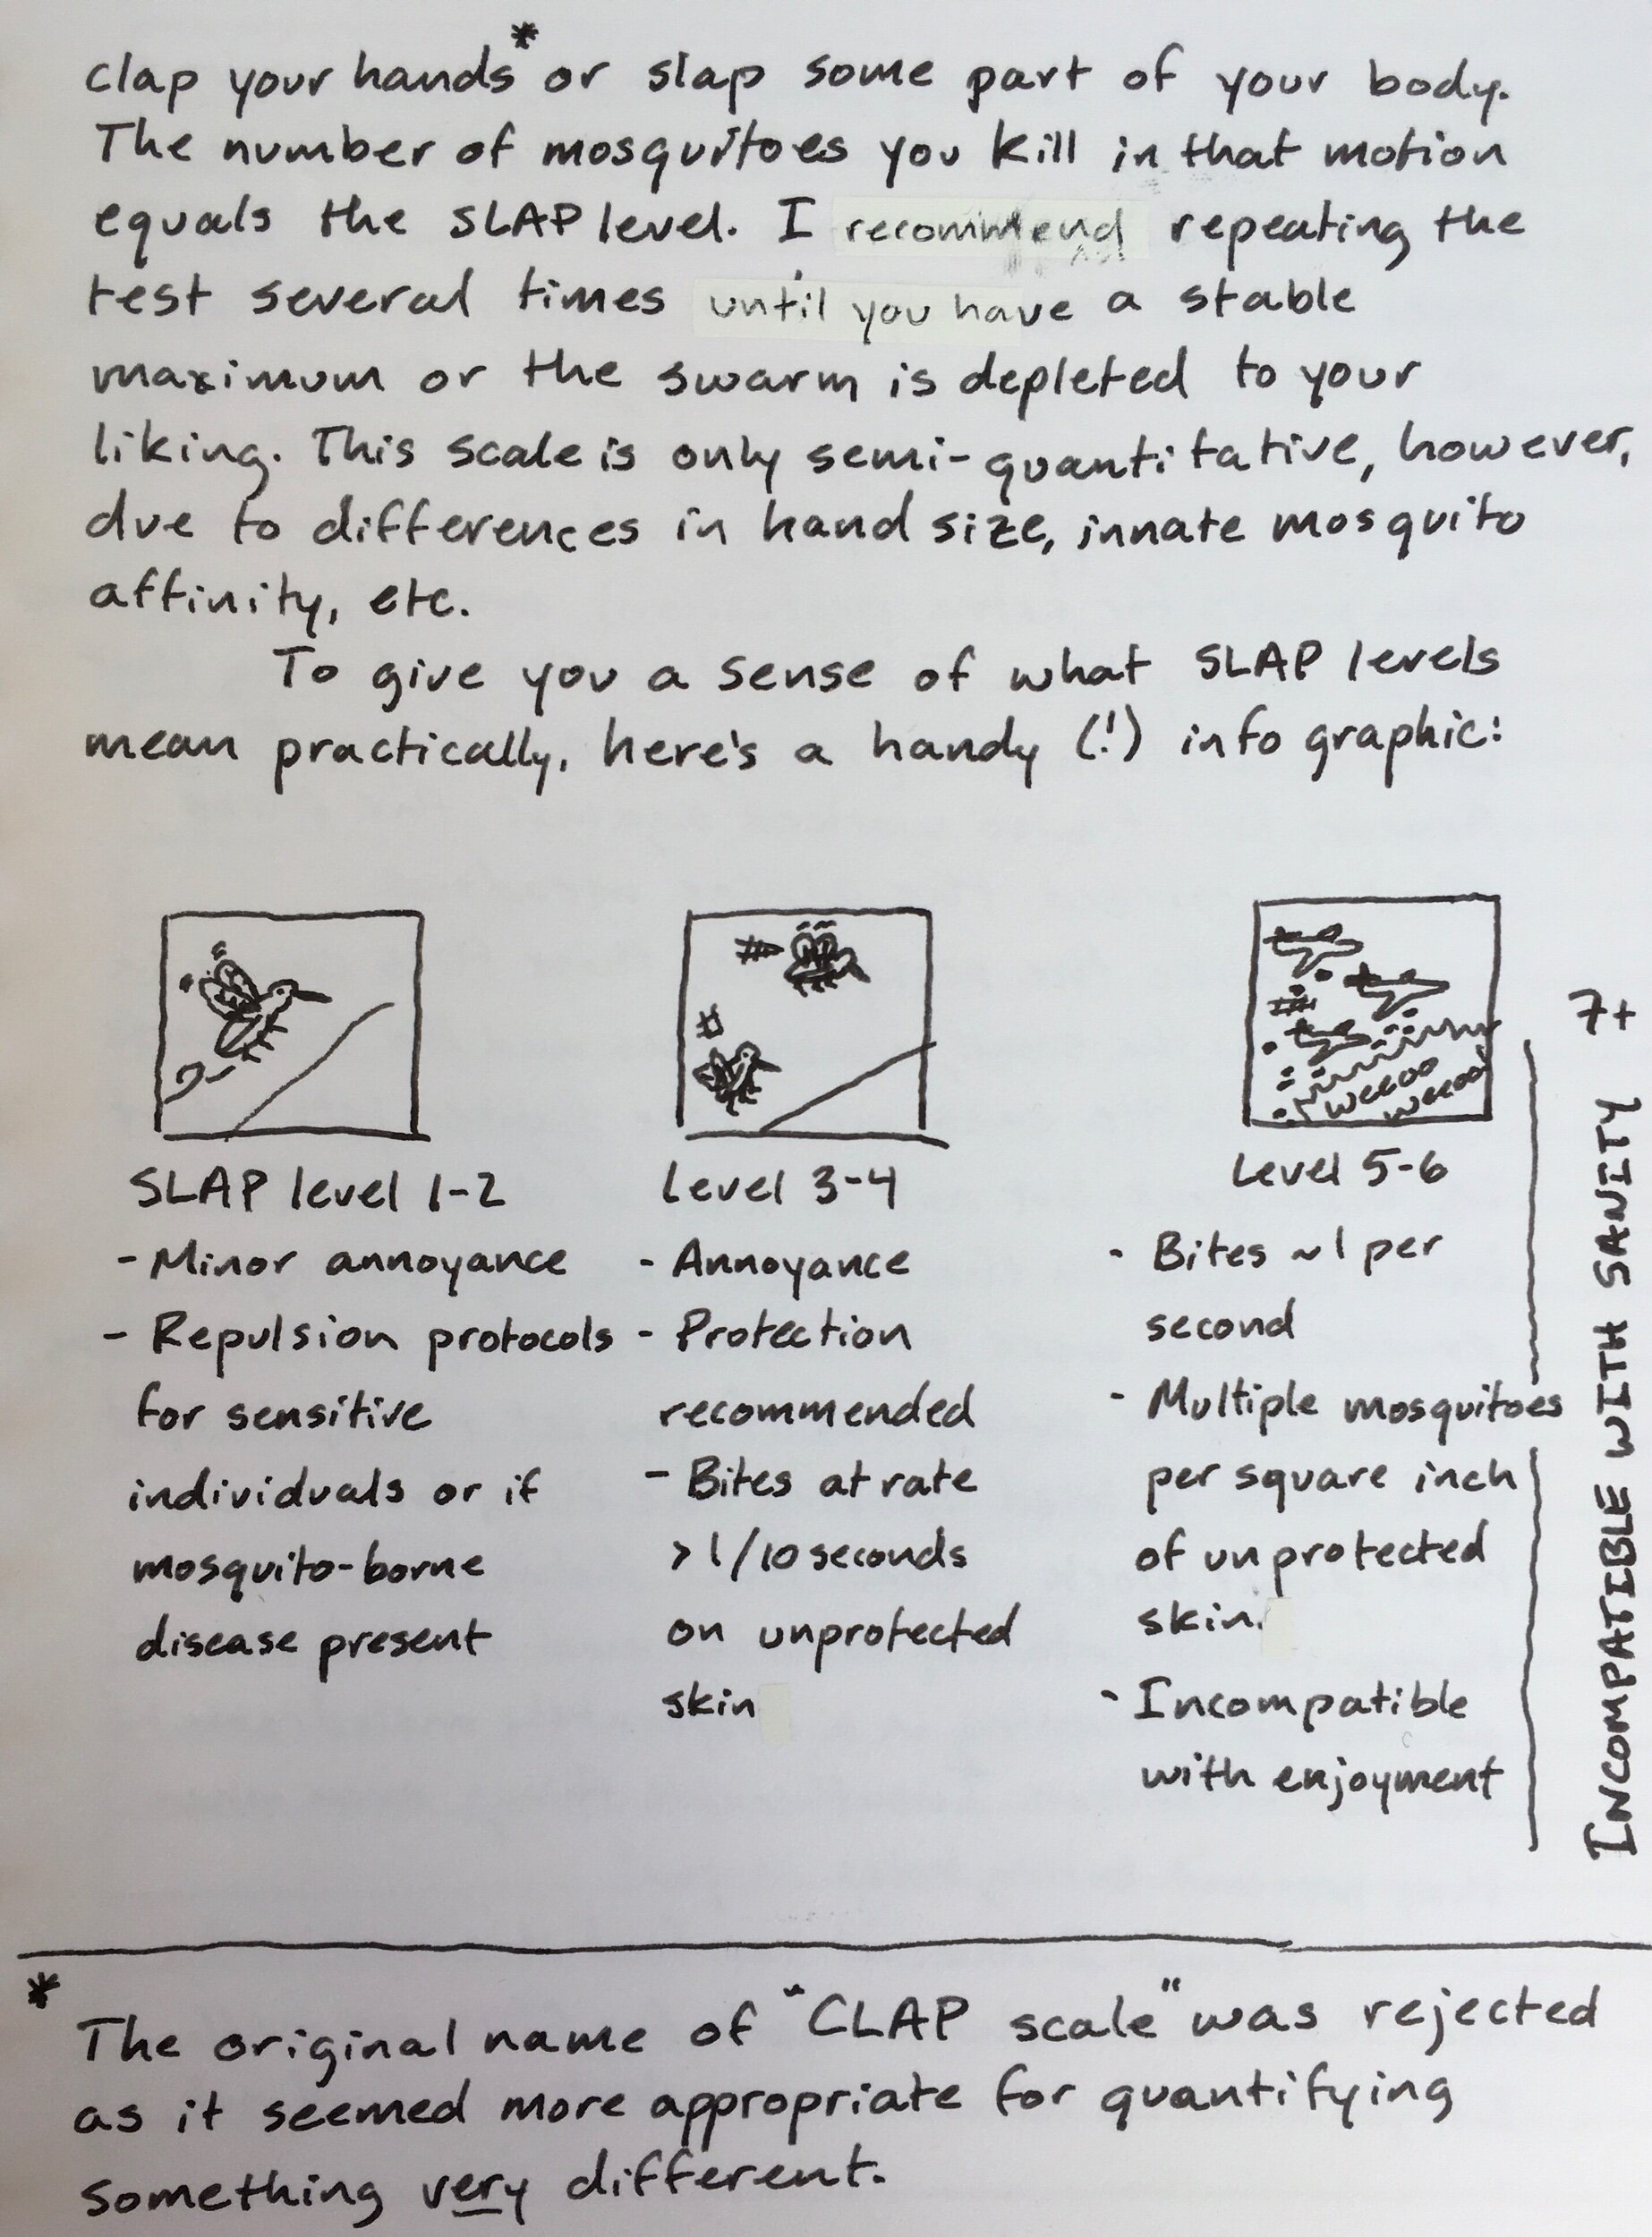 clap your hands* or slap some part of your body.
The number of mosquitoes you kill in that motion
equals the SLAP level. I recommend repeating the
test several times until you have a stable
maximum or the swarm is depleted to your
liking. This scale is only semi-quantitative, however,
due to differences in hand size, innate mosquito
affinity, etc.
To give you a sense of what SLAP levels
mean practically, here's a handy (!) info graphic:
SLAP level 1-2
- Minor annoyance
- Repulsion protocols
for sensitive
individuals or if
mosquito-borne
disease present
Level 3-4
- Annoyance
- Protection
recommended
- Bites at rate
> 1/10 seconds
on unprotected
skin
weeoo
weeoo
Level 5-6
- Bites ~1 per
second
- Multiple mosquitoes
per square inch
of unprotected
skin.
- Incompatible
with enjoyment
7+
INCOMPATIBLE WITH SANITY
* The original name of "CLAP scale" was rejected
as it seemed more appropriate for quantifying
something very different.